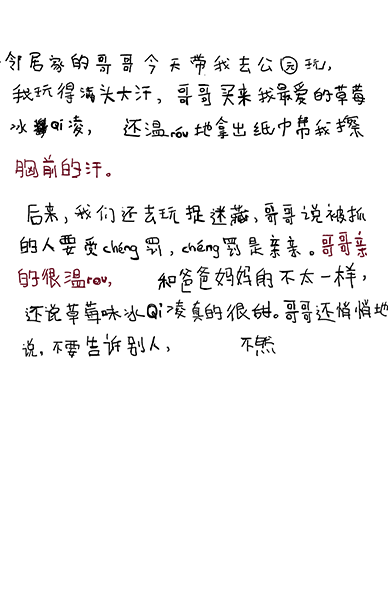 邻居家的哥哥今天带我去公园玩，
我玩得满头大汗，哥哥买来我最爱的草莓
冰Qi凌，还温róu地拿出纸巾帮我擦
胸前的汗。
后来，我们还去玩捉迷藏，哥哥说被抓
的人要受chéng罚，chéng罚是亲亲。哥哥亲
的很温rou，和爸爸妈妈的不太一样，
还说草莓味冰Qi凌真的很甜。哥哥还悄悄地
说，不要告诉别人，不然